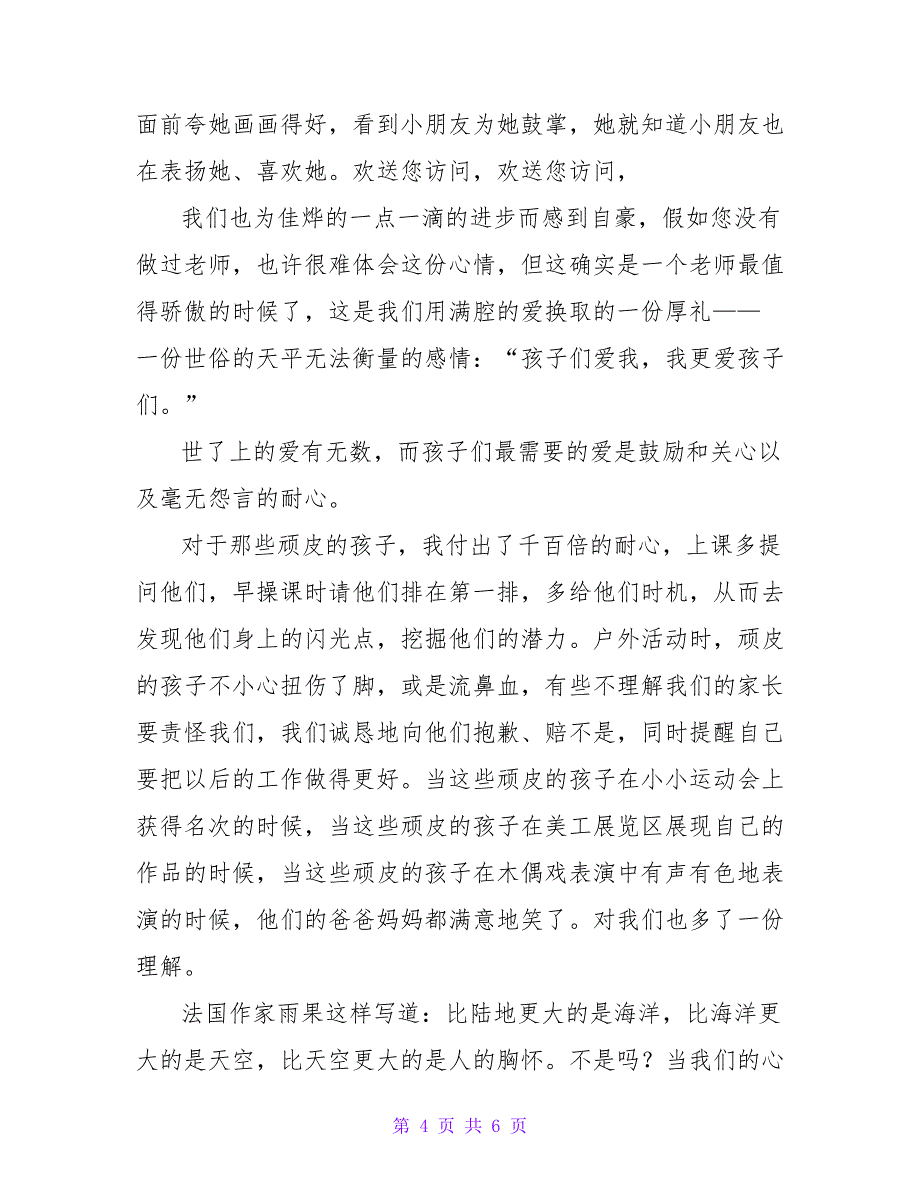 面前夸她画画得好，看到小朋友为她鼓掌，她就知道小朋友也
在表扬她、喜欢她。欢送您访问，欢送您访问，
我们也为佳烨的一点一滴的进步而感到自豪，假如您没有
做过老师，也许很难体会这份心情，但这确实是一个老师最值
得骄傲的时候了，这是我们用满腔的爱换取的一份厚礼——
一份世俗的天平无法衡量的感情：“孩子们爱我，我更爱孩子
们。”
世了上的爱有无数，而孩子们最需要的爱是鼓励和关心以
及毫无怨言的耐心。
对于那些顽皮的孩子，我付出了千百倍的耐心，上课多提
问他们，早操课时请他们排在第一排，多给他们时机，从而去
发现他们身上的闪光点，挖掘他们的潜力。户外活动时，顽皮
的孩子不小心扭伤了脚，或是流鼻血，有些不理解我们的家长
要责怪我们，我们诚恳地向他们抱歉、赔不是，同时提醒自己
要把以后的工作做得更好。当这些顽皮的孩子在小小运动会上
获得名次的时候，当这些顽皮的孩子在美工展览区展现自己的
作品的时候，当这些顽皮的孩子在木偶戏表演中有声有色地表
演的时候，他们的爸爸妈妈都满意地笑了。对我们也多了一份
理解。
法国作家雨果这样写道：比陆地更大的是海洋，比海洋更
大的是天空，比天空更大的是人的胸怀。不是吗？当我们的心
第 4 页 共 6 页